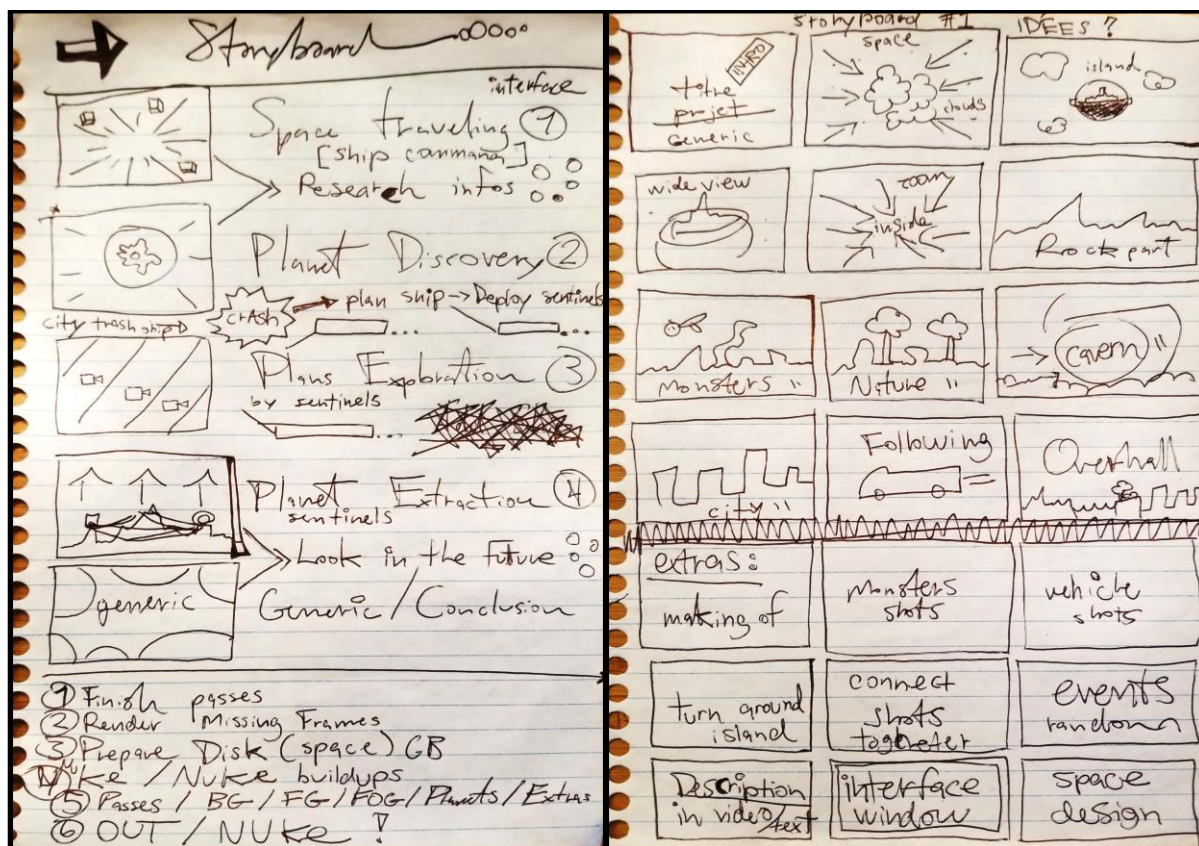 Storyboard
interface
Space traveling 1
[ship command]
Research infos
Planet Discovery 2
city trash ship
CrAsh
plan ship → Deploy sentinels
Plans Exploration 3
by sentinels
Planet Extraction 4
sentinels
Look in the future
generic
Generic/Conclusion
1 Finish passes
2 Render Missing Frames
3 Prepare Disk (space) GB
Nuke / Nuke buildups
5 Passes / BG / FG / FOG / Planets / Extras
6 OUT / NUKe !
Storyboard #1 IDÉES ?
INTRO
titre
projet
Generic
space
clouds
island
wide view
zoom
inside
Rock part
Monsters "
Nature "
cavern "
city "
Following
Overhall
extras:
making of
monsters
shots
vehicle
shots
turn around
island
connect
shots
togeteter
events
random
Description
in video/text
interface
window
space
design